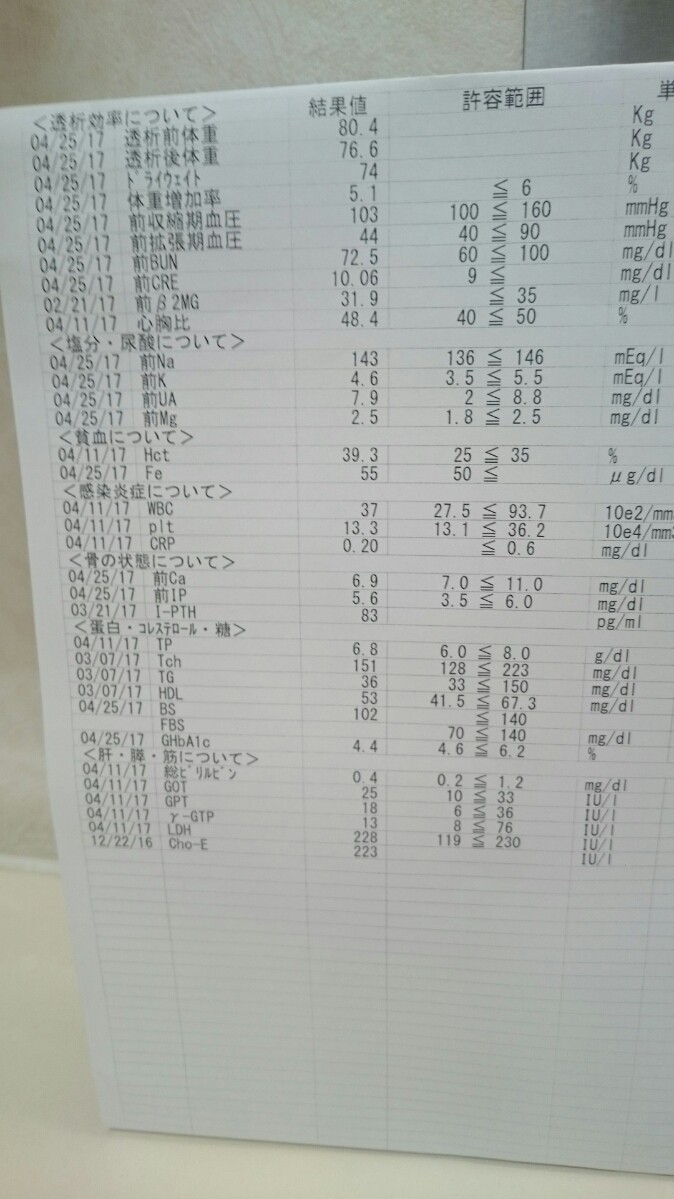 結果値 許容範囲 単
<透析効率について>
04/25/17 透析前体重 80.4 Kg
04/25/17 透析後体重 76.6 Kg
04/25/17 ﾄﾞﾗｲｳｪｲﾄ 74 Kg
04/25/17 体重増加率 5.1 ≦ 6 %
04/25/17 前収縮期血圧 103 100 ≦ 160 mmHg
04/25/17 前拡張期血圧 44 40 ≦ 90 mmHg
04/25/17 前BUN 72.5 60 ≦ 100 mg/dl
04/25/17 前CRE 10.06 9 ≦ mg/dl
02/21/17 前β2MG 31.9 ≦ 35 mg/l
04/11/17 心胸比 48.4 40 ≦ 50 %
<塩分・尿酸について>
04/25/17 前Na 143 136 ≦ 146 mEq/l
04/25/17 前K 4.6 3.5 ≦ 5.5 mEq/l
04/25/17 前UA 7.9 2 ≦ 8.8 mg/dl
04/25/17 前Mg 2.5 1.8 ≦ 2.5 mg/dl
<貧血について>
04/11/17 Hct 39.3 25 ≦ 35 %
04/25/17 Fe 55 50 ≦ μg/dl
<感染炎症について>
04/11/17 WBC 37 27.5 ≦ 93.7 10e2/mm
04/11/17 plt 13.3 13.1 ≦ 36.2 10e4/mm3
04/11/17 CRP 0.20 ≦ 0.6 mg/dl
<骨の状態について>
04/25/17 前Ca 6.9 7.0 ≦ 11.0 mg/dl
04/25/17 前IP 5.6 3.5 ≦ 6.0 mg/dl
03/21/17 I-PTH 83 pg/ml
<蛋白・ｺﾚｽﾃﾛｰﾙ・糖>
04/11/17 TP 6.8 6.0 ≦ 8.0 g/dl
03/07/17 Tch 151 128 ≦ 223 mg/dl
03/07/17 TG 36 33 ≦ 150 mg/dl
03/07/17 HDL 53 41.5 ≦ 67.3 mg/dl
04/25/17 BS 102 ≦ 140
FBS 70 ≦ 140 mg/dl
04/25/17 GHbA1c 4.4 4.6 ≦ 6.2 %
<肝・膵・筋について>
04/11/17 総ﾋﾞﾘﾙﾋﾞﾝ 0.4 0.2 ≦ 1.2 mg/dl
04/11/17 GOT 25 10 ≦ 33 IU/l
04/11/17 GPT 18 6 ≦ 36 IU/l
04/11/17 γ-GTP 13 8 ≦ 76 IU/l
04/11/17 LDH 228 119 ≦ 230 IU/l
12/22/16 Cho-E 223 IU/l